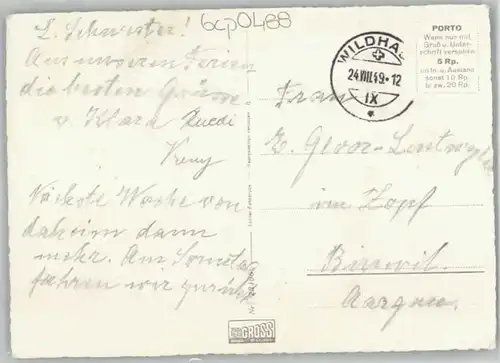 bcp0488
L. Schwester!
Aus unseren Ferien
die besten Grüsse
v. Klara Ruedi
Vreny
Nächste Woche von
daheim dann
mehr. Am Sonntag
fahren wir zurück
WILDHAUS
24.VIII.49-12
IX
PORTO
Wenn nur mit
Gruß u. Unter-
schrift versehen
5 Rp.
im In- u. Ausland
sonst 10 Rp.
bzw. 20 Rp.
Frau
E. Gloor-
im Zopf
Birrwil
Aargau
GROSS